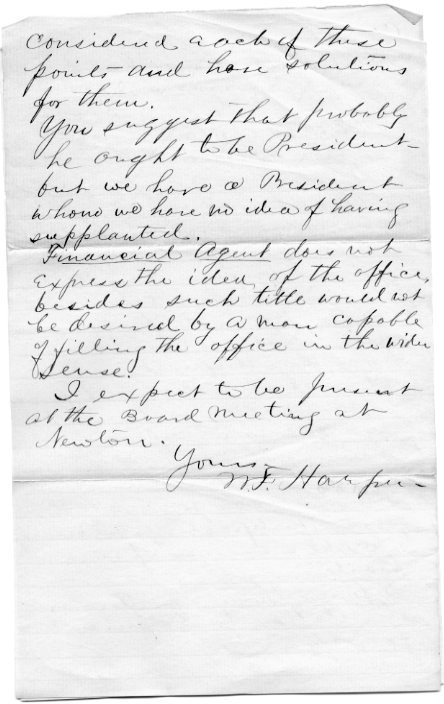 considered each of these
points and have solutions
for them.
You suggest that probably
he ought to be President—
but we have a President
whom we have no idea of having
supplanted.
Financial Agent does not
express the idea of the office,
besides such title would not
be desired by a man capable
of filling the office in the wider
sense.
I expect to be present
at the Board Meeting at
Newton.
Yours—
W.F. Harper—